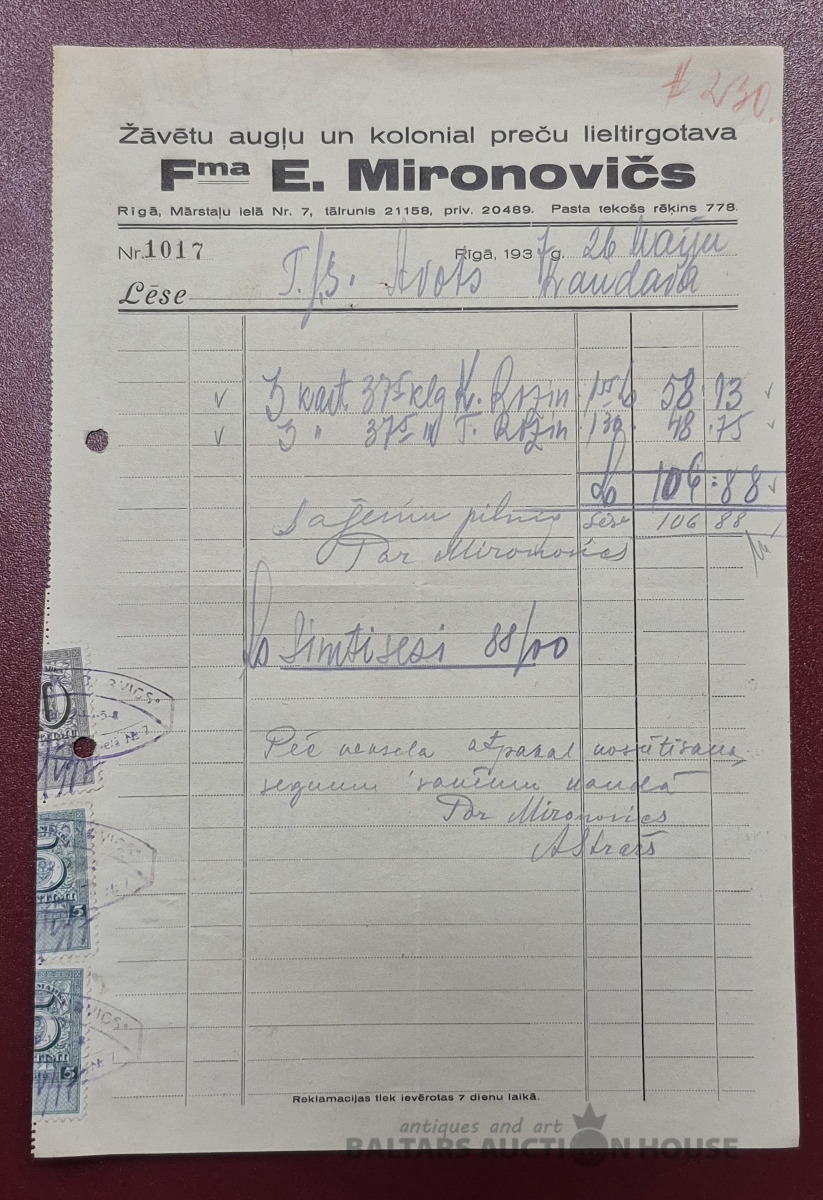 # 230.
Žāvētu augļu un kolonial preču lieltirgotava
Fma E. Mironovičs
Rīgā, Mārstaļu ielā Nr. 7, tālrunis 21158, priv. 20489. Pasta tekošs rēķins 778.
Nr. 1017 Rīgā, 1937 g. 26 Maijā
Lēse T./s. Avots Kandavā
3 kart 375 klg K. Rozin 156 58.13
3 " 375 " T. Rozin 130 48.75
Ls 106:88
Saņēmu pilnīg Lēse 106 88
Par Mironovics
Ls Simtisesi 88/100
Pēc veksela atpakal nosūtīšana
segumu saņēmu naudā
Par Mironovics
AStrašs
5
5
Reklamacijas tiek ievērotas 7 dienu laikā.
antiques and art
BALTARS AUCTION HOUSE